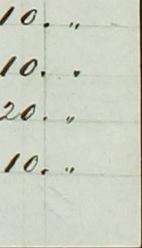 10. "
10. "
20. "
10. "